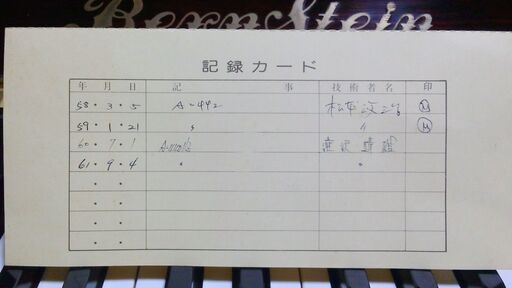 Bernstein
記録カード
年 月 日 記 事 技術者名 印
58・3・5 A-442 松本 M
59・1・21 〃 〃 M
60・7・1
61・9・4 〃 〃